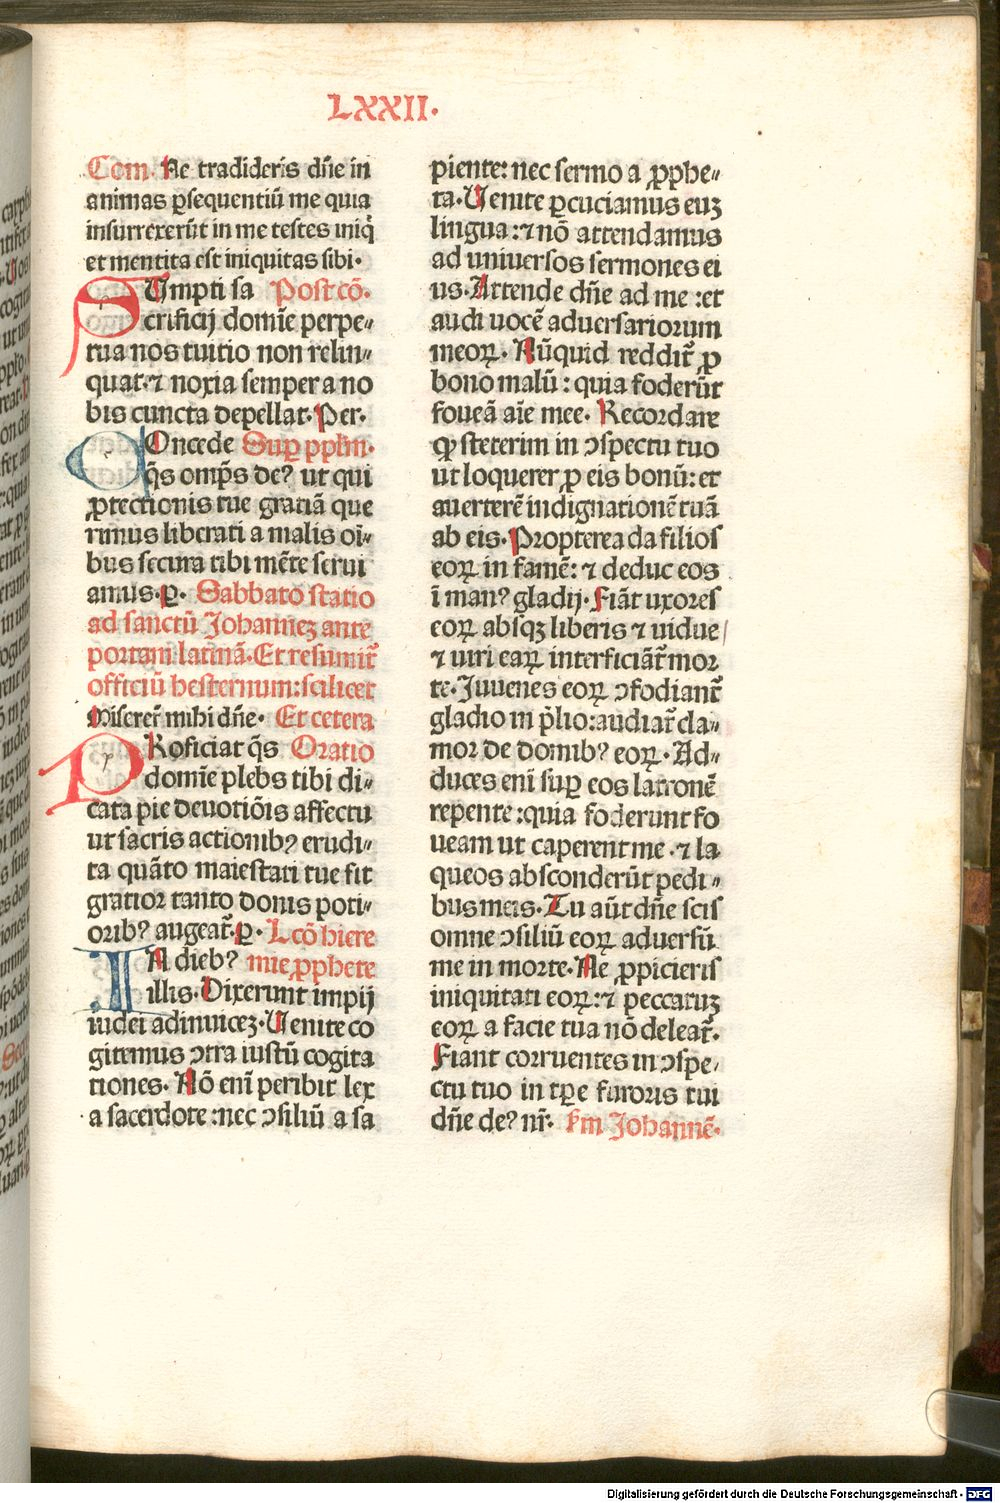 LXXII.
Com. Ne tradideris dn̄e in
animas ꝑsequentiū me quia
insurrexerūt in me testes iniq̇
et mentita est iniquitas sibi.
SUmpti sa Postcō.
crificij domīe perpe⸗
tua nos tuitio non relin⸗
quat.⁊ noxia semper a no
bis cuncta depellat. Per.
COncede Suꝑ ppl̄m.
q̄s omp̄s de? ut qui
ꝓtectionis tue gratiā que
rimus liberati a malis oī⸗
bus secura tibi mēte serui
amus. ꝑ. Sabbato statio
ad sanctū Johannez ante
portam latinā. Et resumit᷑
officiū hesternum: scilicet
Miserer̄ mihi dn̄e. Et cetera
PRoficiat q̄s Oratio
domīe plebs tibi di⸗
cata pie deuotiōis affectu
ut sacris actionib? erudi⸗
ta quāto maiestati tue fit
gratior tanto donis poti⸗
orib? augeat᷑. ꝑ. Lcō hiere
IN dieb? mie ꝓphete
illis. Dixerunt impij
iudei adinuicez. Uenite co
gitemus ↄtra iustū cogita
tiones. Nō enī peribit lex
a sacerdote: nec ↄsiliū a sa
piente: nec sermo a ꝓphe⸗
ta. Uenite ꝑcuciamus euz
lingua: ⁊ nō attendamus
ad uniuersos sermones ei
us. Attende dn̄e ad me: et
audi uocē aduersariorum
meoꝝ. Nūquid reddit᷑ ꝓ
bono malū: quia foderūt
foueā aīe mee. Recordare
ꝙ steterim in ↄspectu tuo
ut loquerer ꝓ eis bonū: et
auerterē indignationē tuā
ab eis. Propterea da filios
eoꝝ in famē: ⁊ deduc eos
ī man? gladij. Fiāt uxores
eoꝝ absqꝫ liberis ⁊ uidue
⁊ uiri eaꝝ interficiāt᷑ mor
te. Juuenes eoꝝ ↄfodiant᷑
gladio in p̄lio: audiat᷑ cla⸗
mor de domib? eoꝝ. Ad⸗
duces enī suꝑ eos latronē
repente: quia foderunt fo
ueam ut caperent me. ⁊ la
queos absconderūt pedi⸗
bus meis. Tu aūt dn̄e scis
omne ↄsiliū eoꝝ aduersū
me in morte. Ne ꝓpicieris
iniquitati eoꝝ: ⁊ peccatuz
eoꝝ a facie tua nō deleat᷑.
Fiant corruentes in ↄspe⸗
ctu tuo in tꝑe furoris tui
dn̄e de? nr̄. ẜm Johannē.
Digitalisierung gefördert durch die Deutsche Forschungsgemeinschaft - DFG